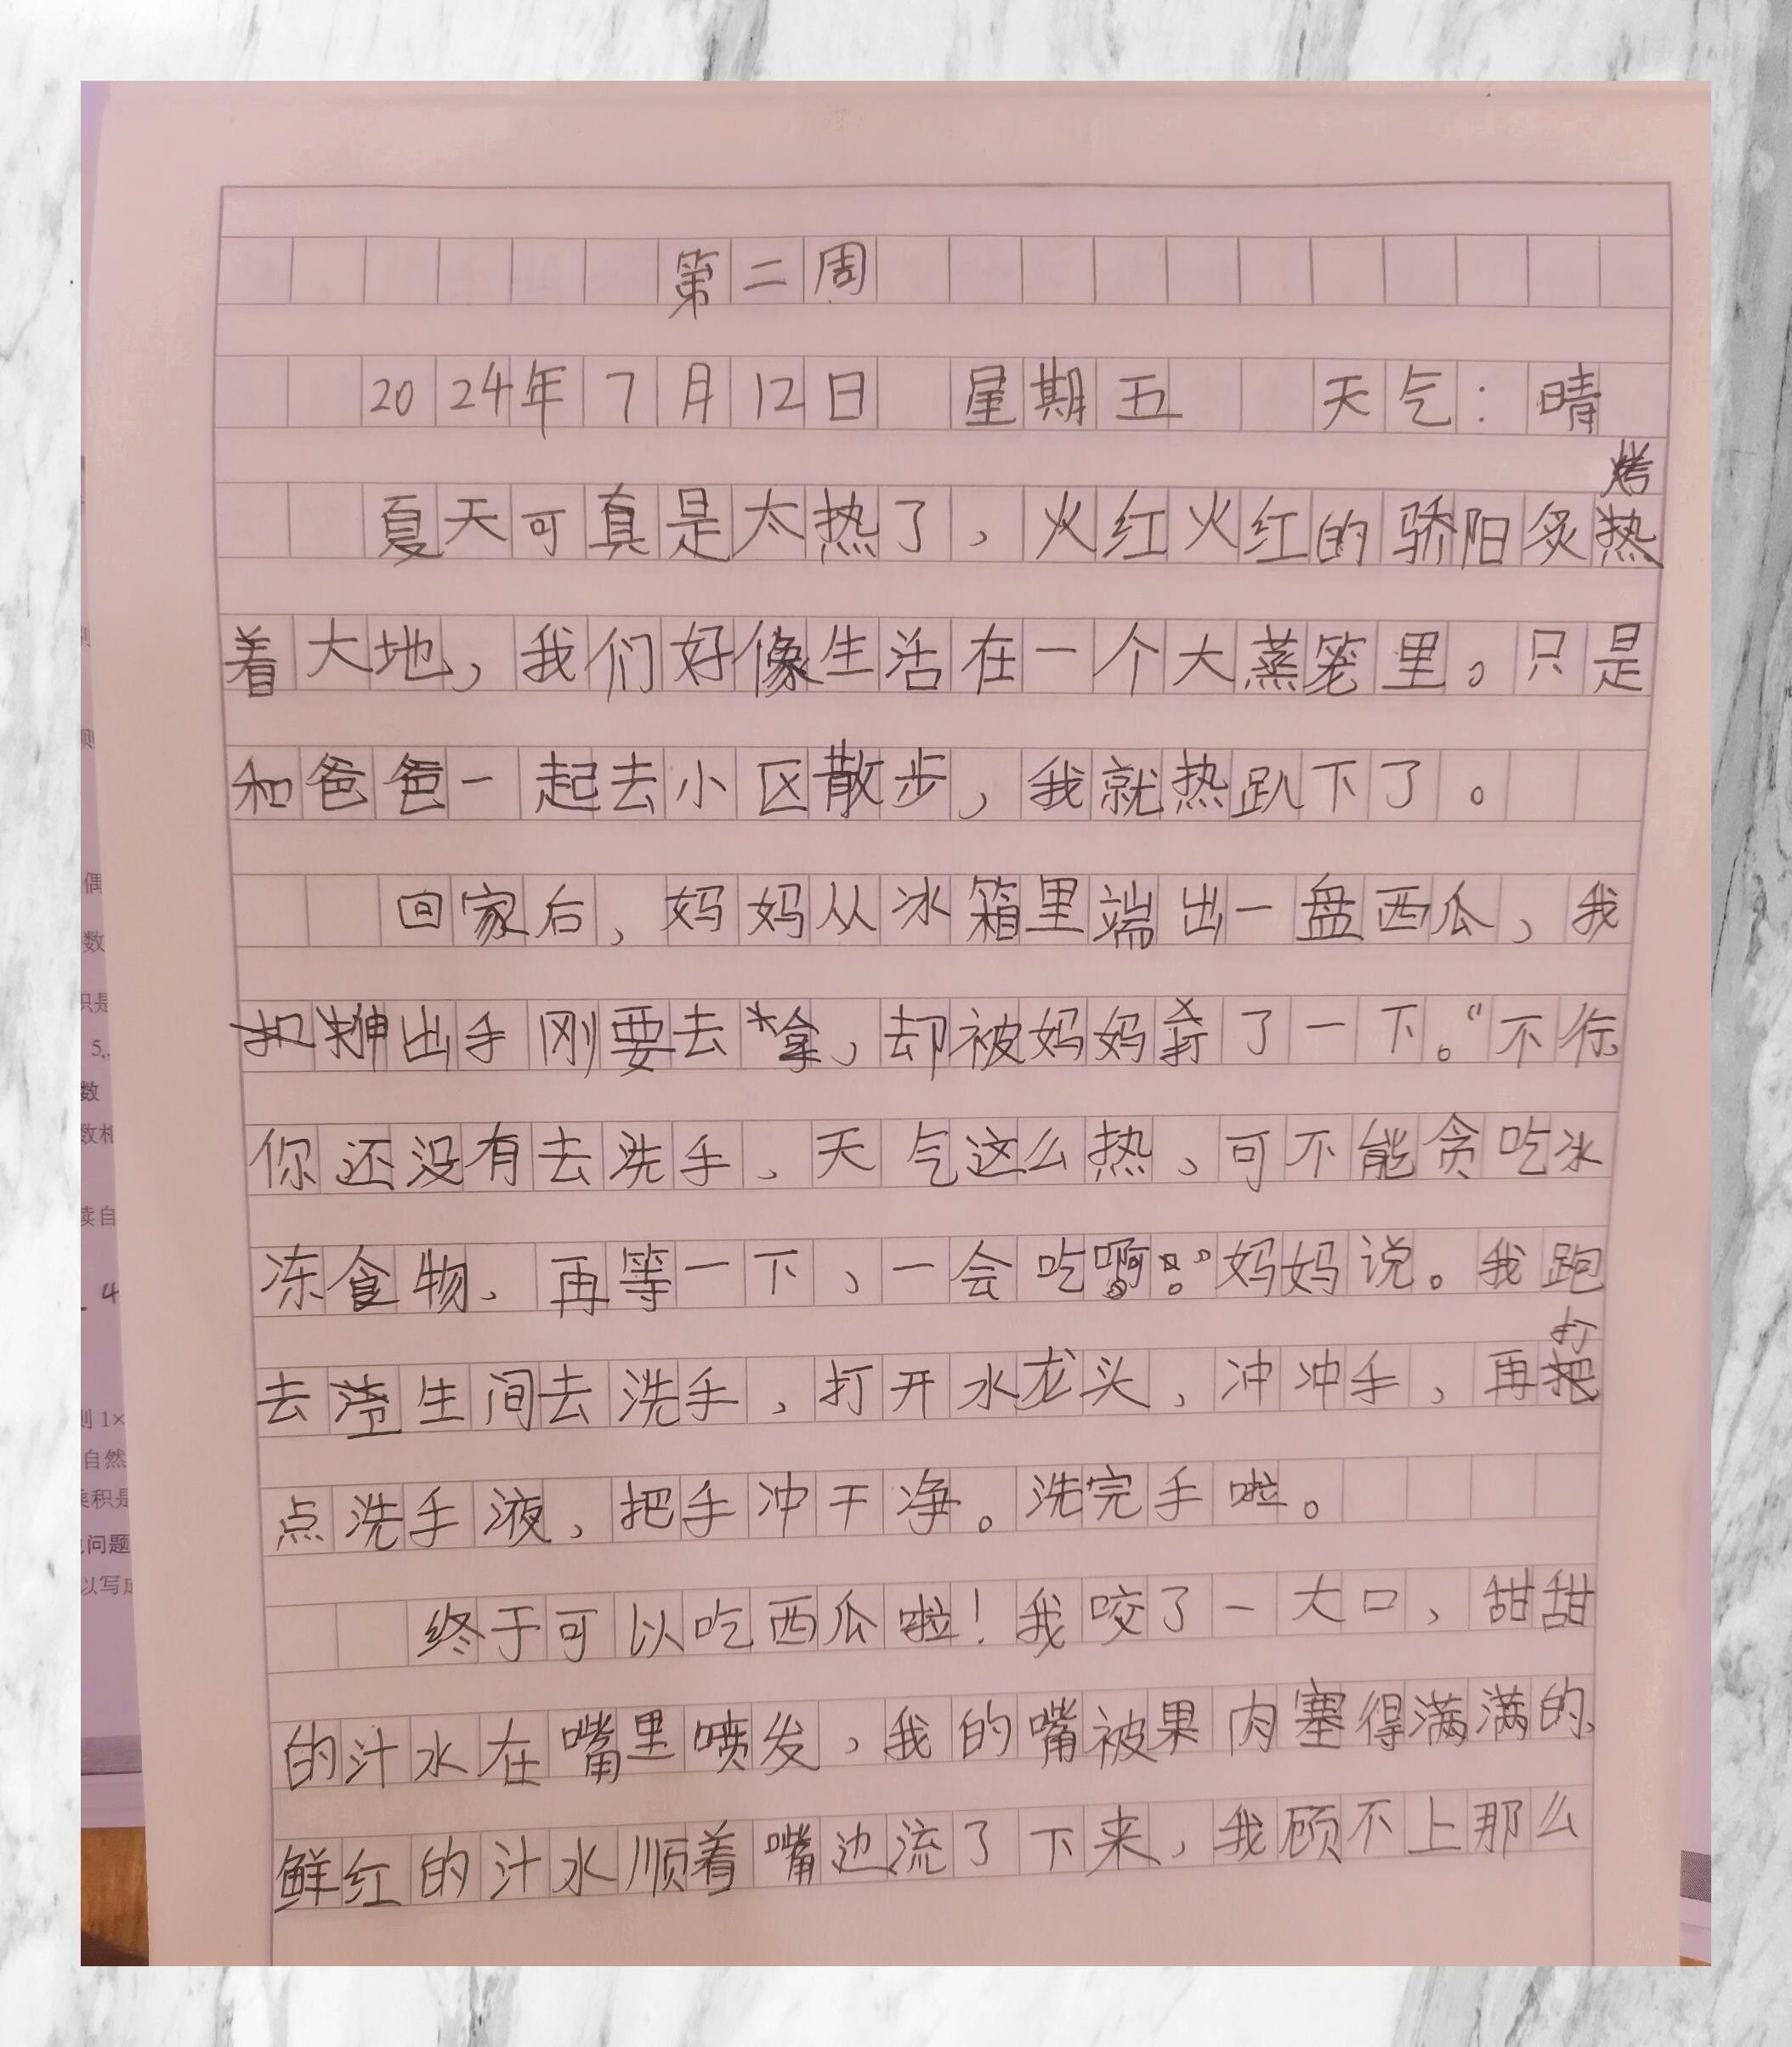 第二周
2024年7月12日 星期五 天气：晴
夏天可真是太热了，火红火红的骄阳炙烤
着大地，我们好像生活在一个大蒸笼里。只是
和爸爸一起去小区散步，我就热趴下了。
回家后，妈妈从冰箱里端出一盘西瓜，我
伸出手刚要去拿，却被妈妈了一下。“不行
你还没有去洗手，天气这么热，可不能贪吃冰
冻食物，再等一下，一会吃啊。”妈妈说。我跑
去生间去洗手，打开水龙头，冲冲手，再打
点洗手液，把手冲干净。洗完手啦。
终于可以吃西瓜啦！我咬了一大口，甜甜
的汁水在嘴里喷发，我的嘴被果肉塞得满满的，
鲜红的汁水顺着嘴边流了下来，我顾不上那么
数
5,
数
读自
4
自然
问题
以写成